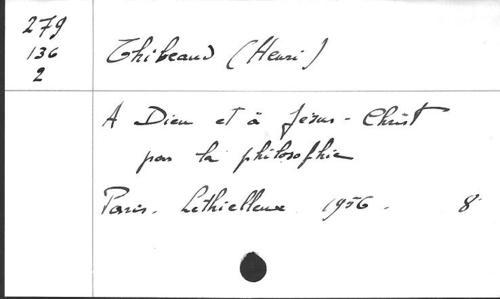 279
136
2
Thibeaud (Henri)
A Dieu et à Jésus-Christ
par la philosophie
Paris. Lethielleux 1956. 8°